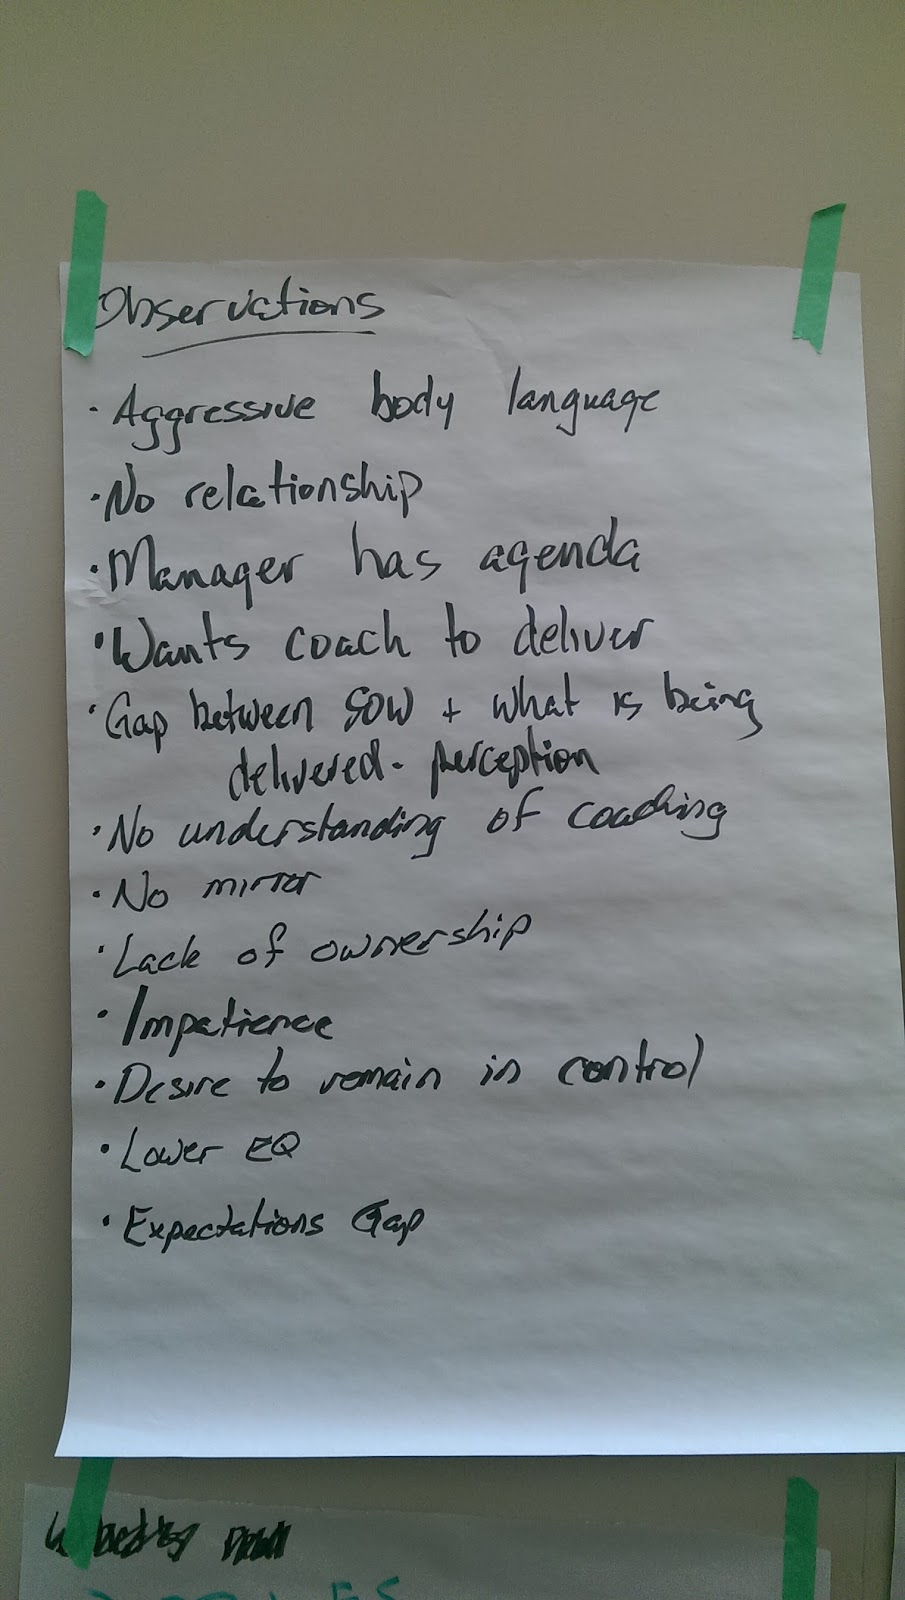 Observations
· Aggressive body language
· No relationship
· Manager has agenda
· Wants coach to deliver
· Gap between SOW + what is being
delivered - perception
· No understanding of coaching
· No mirror
· Lack of ownership
· Impatience
· Desire to remain in control
· Lower EQ
· Expectations Gap